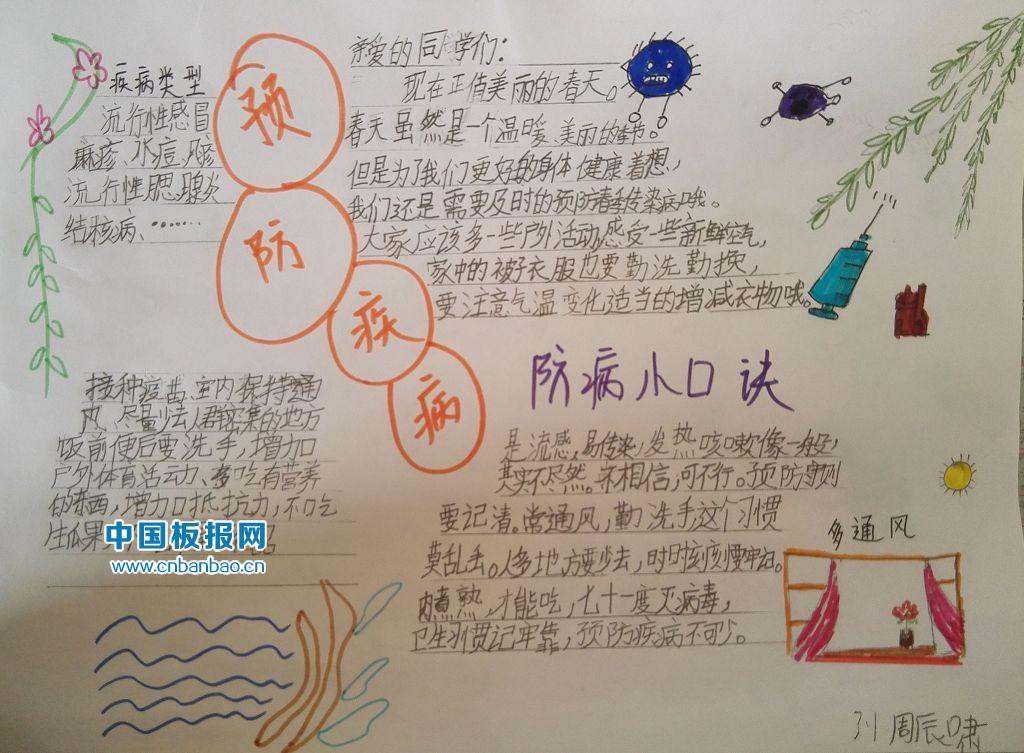 预防疾病
疾病类型
流行性感冒
麻疹、水痘、风疹
流行性腮腺炎
结核病、……
亲爱的同学们:
现在正值美丽的春天。
春天虽然是一个温暖、美丽的季节。
但是为了我们更好的身体健康着想,
我们还是需要及时的预防春季传染病哦。
大家应该多一些户外活动感受一些新鲜空气,
家中的被子衣服也要勤洗勤换,
要注意气温变化适当的增减衣物哦。
接种疫苗、室内保持通
风、尽量少去人群密集的地方
饭前便后要洗手,增加
户外体育活动、多吃有营养
的东西,增加抵抗力,不吃
生瓜果
中国板报网
www.cnbanbao.cn
防病小口诀
是流感,易传染,发热咳嗽像一般,
其实不尽然。不相信,可不行。预防守则
要记清。常通风,勤洗手这个习惯
莫乱丢。人多地方要少去,时时刻刻要牢记。
肉煮熟,才能吃,七十一度灭病毒,
卫生习惯记牢靠,预防疾病不可少。
多通风
31 周辰啸